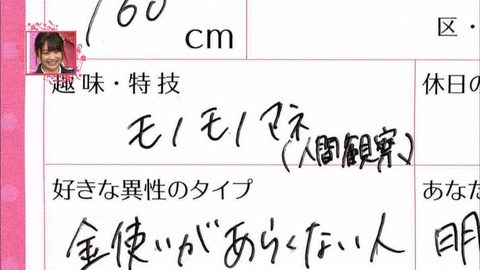 160
cm
区・
趣味・特技
休日の
モノモノマネ
(人間観察)
好きな異性のタイプ
あなた
金使いがあらくない人
明